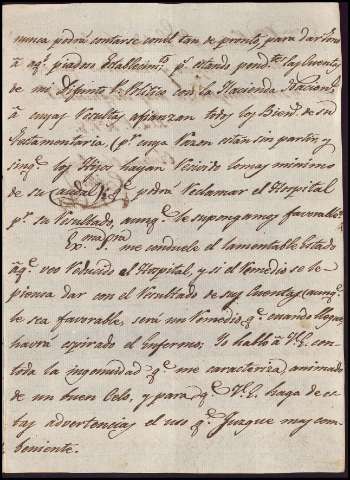 nunca podrá contarse con él tan de pronto para dar
á aq.l piadoso Establecim.to p.r estando pend.tes las Cuentas
de mi Difunto P. Politico con la Hacienda Nacion.l
á cuyas resultas afianzan todos los Bien.s de su
Testamentaria (p.r cuya razon están sin partir, y
sin q.e los Hijos hayan recivido lo mas minimo
de su caudal) q.e podrá reclamar el Hospital
p.r su resultado, aunq.e le supongamos favorable.
Ex.mo S.or me conduele el lamentable Estado
á q.e veo reducido el Hospital, y si el remedio se le
piensa dar con el resultado de sus Cuentas (aunq.e
le sea favorable, será un remedio, q.e quando llegue,
havrá espirado el Enfermo; Yo hablo á V.E. con
toda la ingenuidad q.e me caracteriza, animado
de un buen Celo, y para q.e V.E. haga de es
tas advertencias el uso q.e Juzgue mas com
beniente.